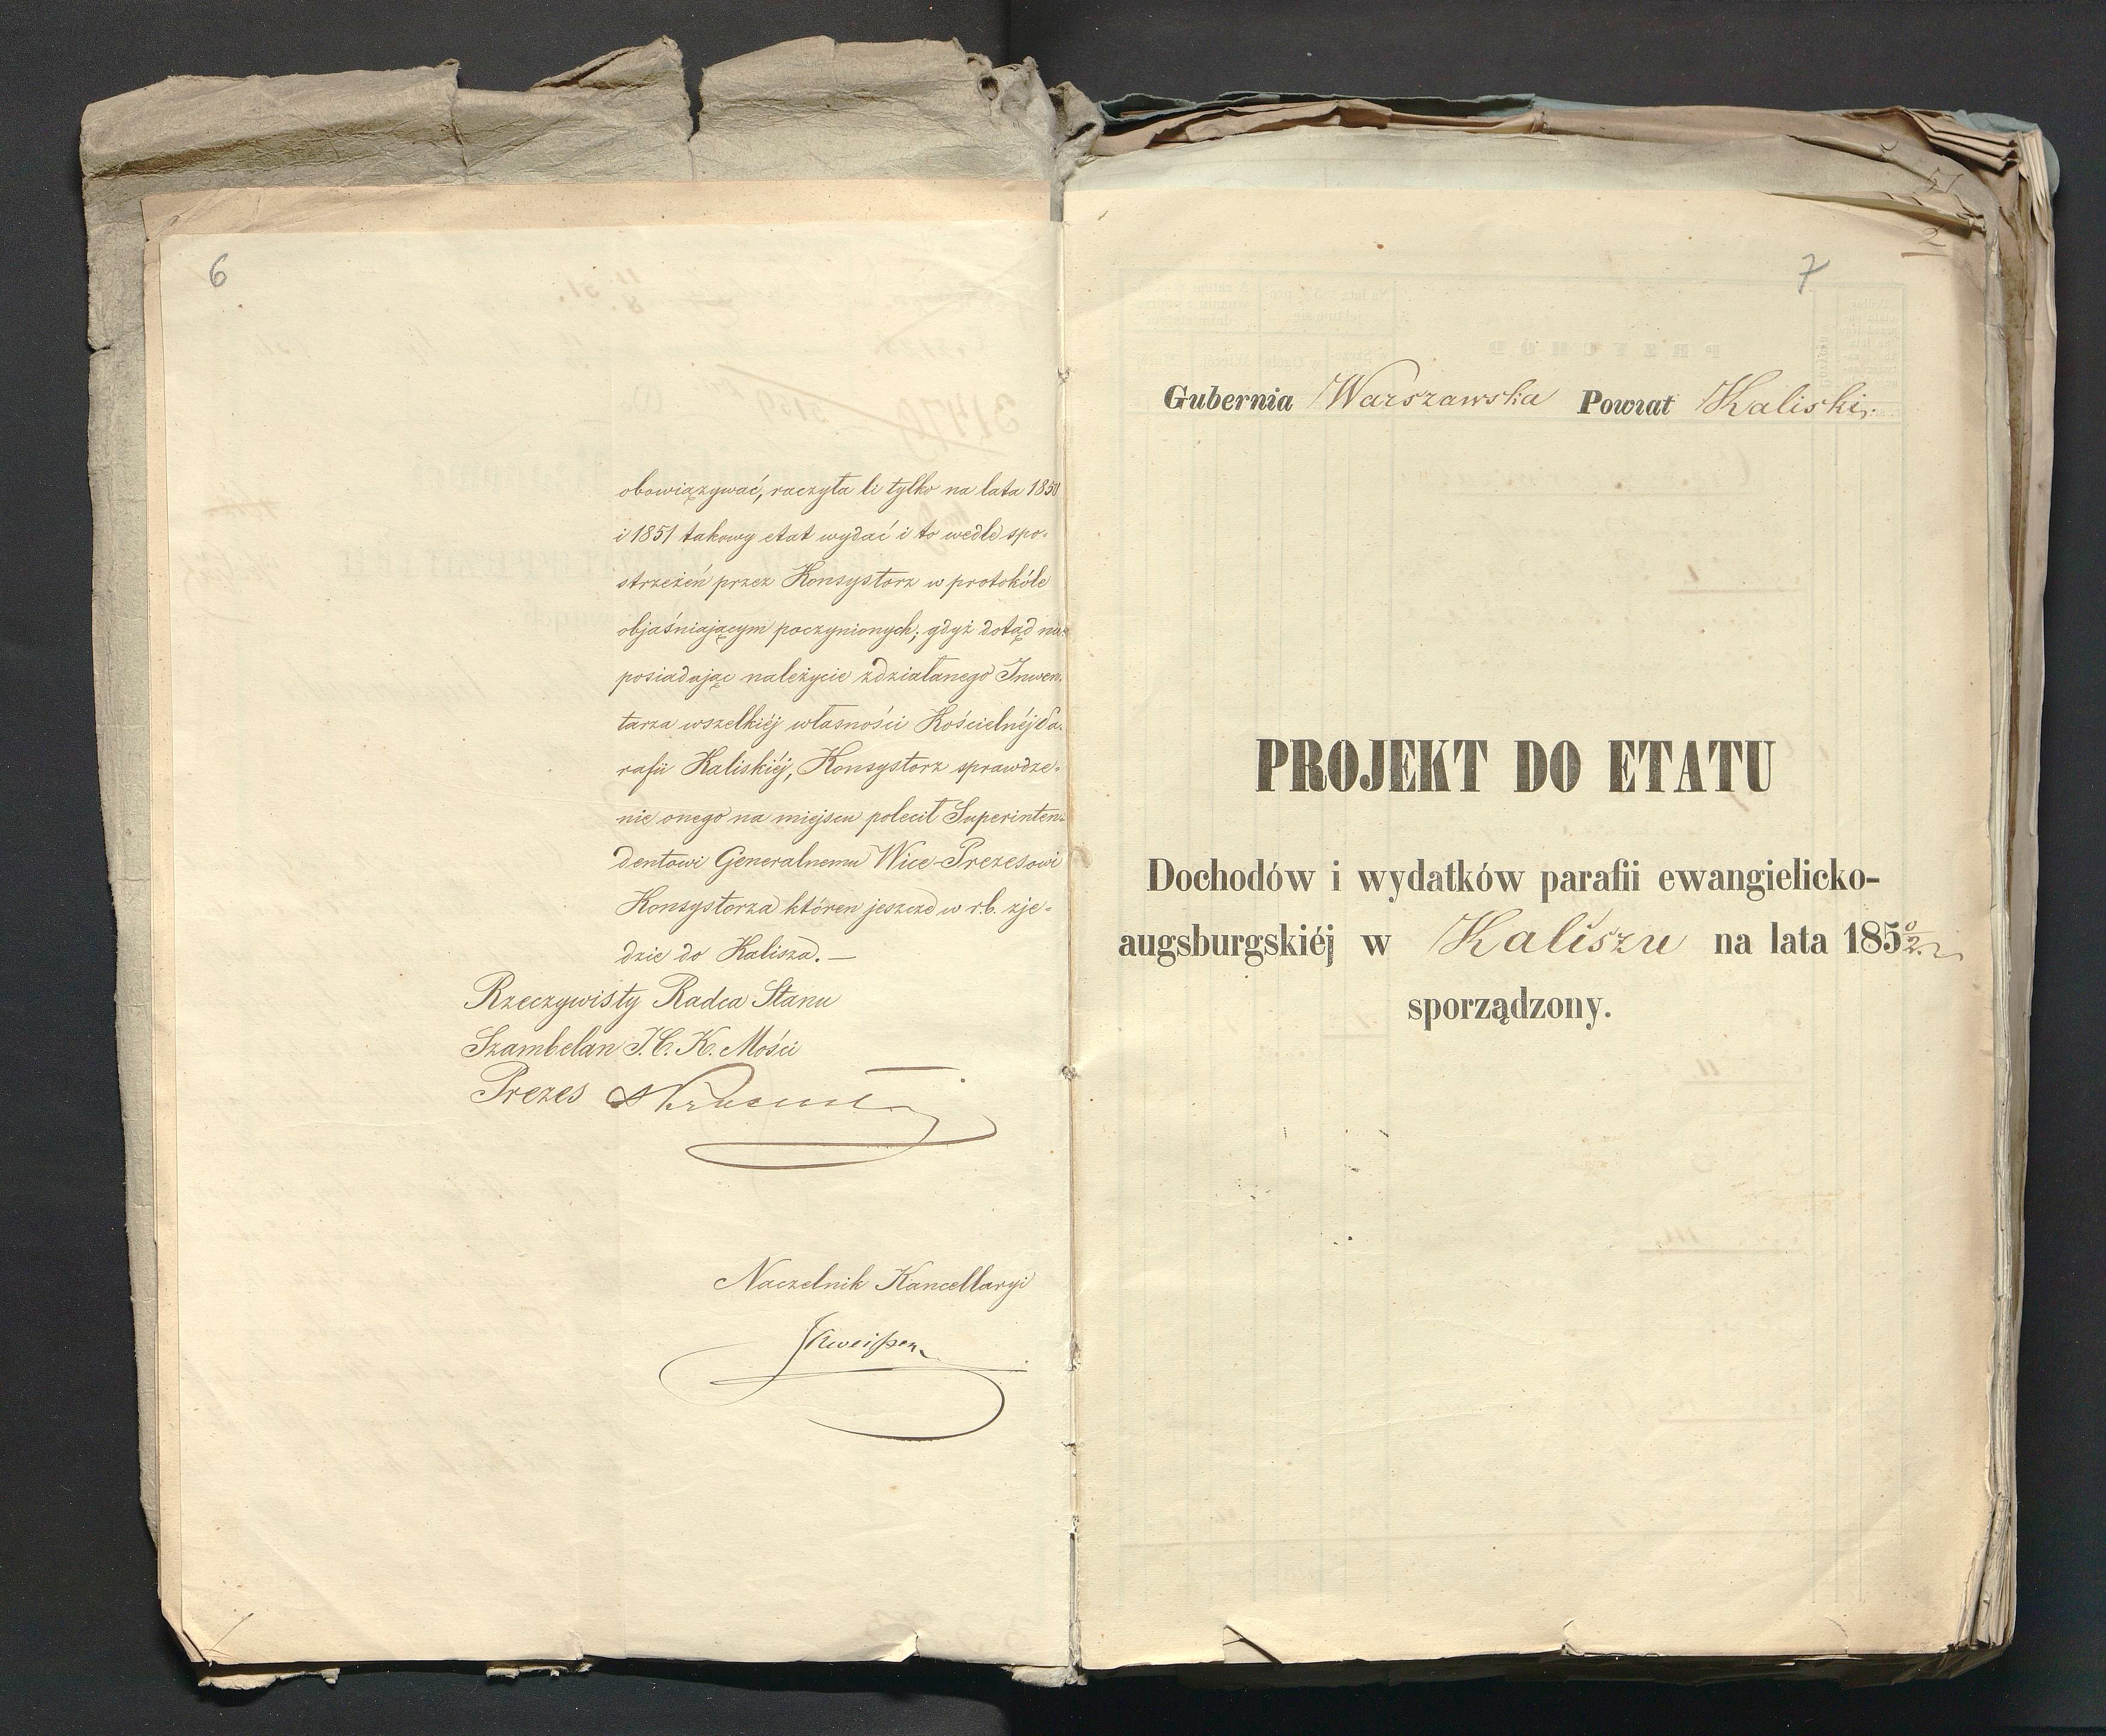 6
obowiązywać, raczyła li tylko na lata 1850
i 1851 takowy etat wydać i to wedle spo-
strzeżeń przez Konsystorz w protokóle
objaśniającym poczynionych; gdyż dotąd nie
posiadając należycie zdziałanego Inwen-
tarza wszelkiéj własności Kościelnéj Pa-
rafii Kaliskiéj, Konsystorz sprawdze-
nie onego na miejscu polecił Superinten-
dentowi Generalnemu Wice-Prezesowi
Konsystorza któren jeszcze w r.b. zje-
dzie do Kalisza. —
Rzeczywisty Radca Stanu
Szambelan J. C. K. Mości
Prezes
Naczelnik Kancellaryi
7
2
Gubernia Warszawska Powiat Kaliski.
PROJEKT DO ETATU
Dochodów i wydatków parafii ewangielicko-
augsburgskiéj w Kaliszu na lata 185 0/2
sporządzony.